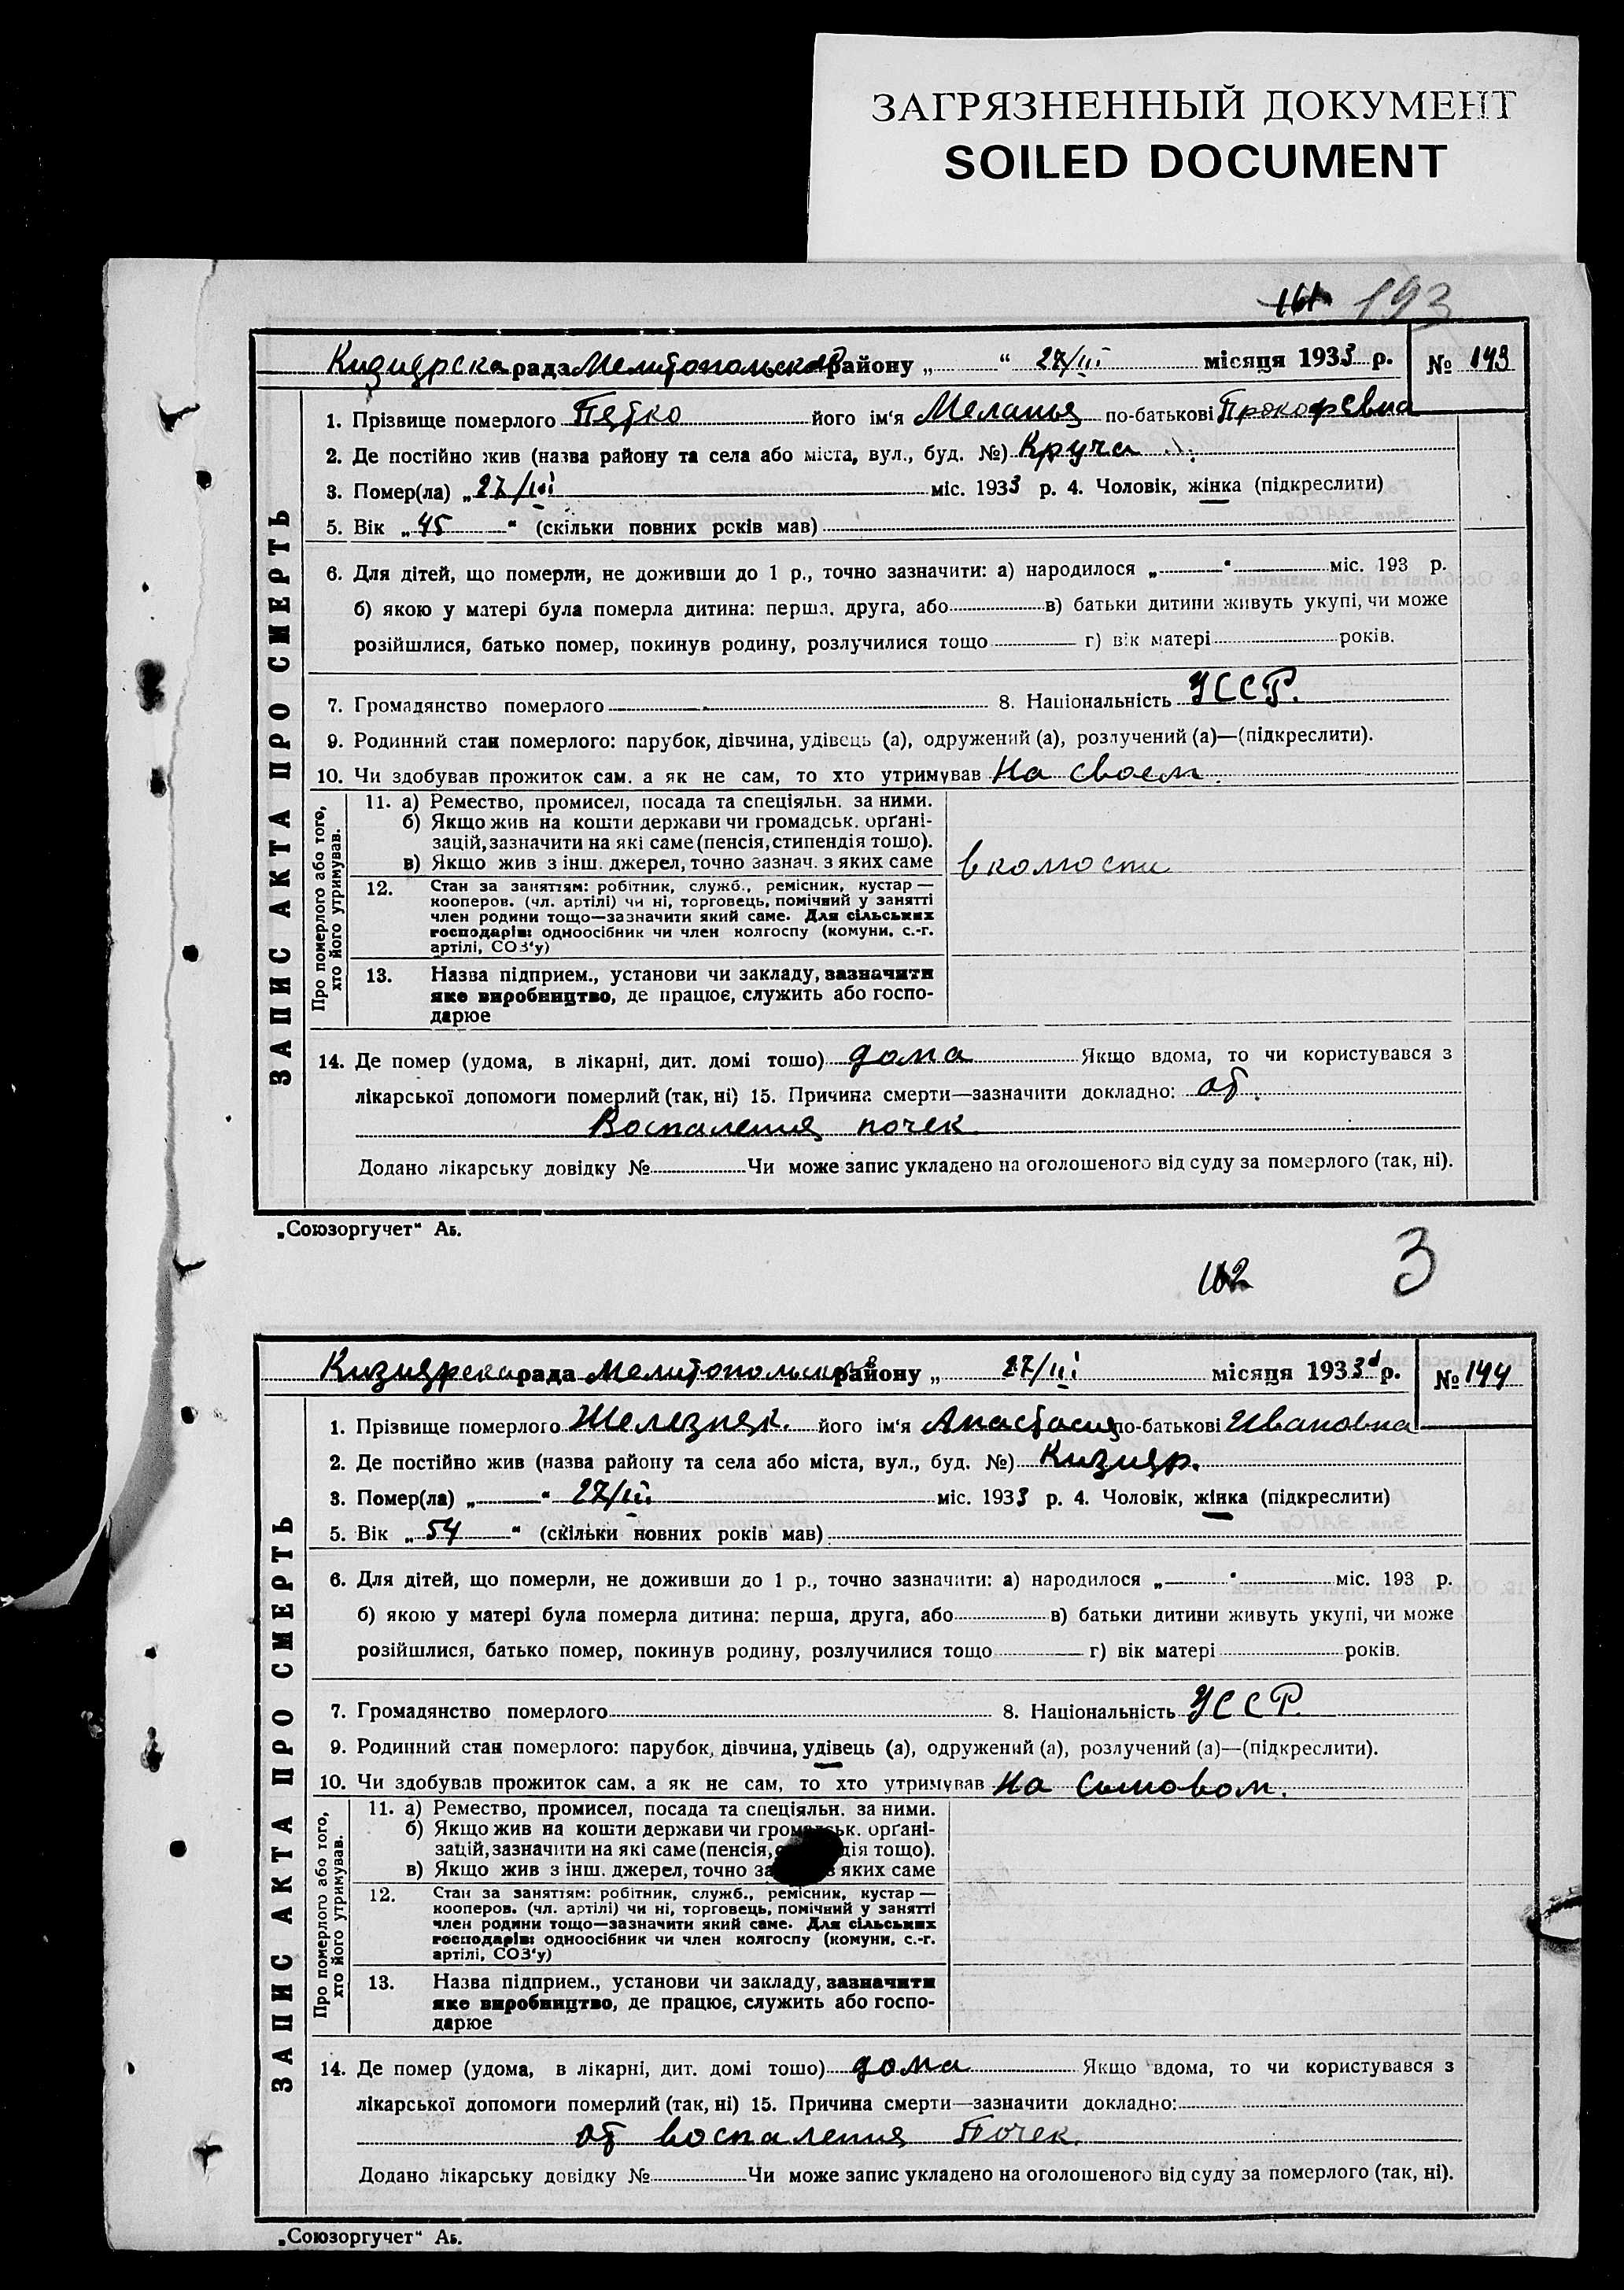 ЗАГРЯЗНЕННЫЙ ДОКУМЕНТ
SOILED DOCUMENT
161 193
Кизиярска рада Мелитопольског району „ “ 27/III місяця 1933 р. № 143
ЗАПИС АКТА ПРО СМЕРТЬ
1. Прізвище померлого Петко його ім'я Меланья по-батькові Прокофевна
2. Де постійно жив (назва району та села або міста, вул., буд. №) Круча
3. Помер(ла) „27/III міс. 1933 р. 4. Чоловік, жінка (підкреслити)
5. Вік „45“ (скільки повних років мав)
6. Для дітей, що померли, не доживши до 1 р., точно зазначити: а) народилося „ “ міс. 193 р.
б) якою у матері була померла дитина: перша, друга, або в) батьки дитини живуть укупі, чи може
розійшлися, батько помер, покинув родину, розлучилися тощо г) вік матері років.
7. Громадянство померлого 8. Національність УССР.
9. Родинний стан померлого: парубок, дівчина, удівець (а), одружений (а), розлучений (а)—(підкреслити).
10. Чи здобував прожиток сам, а як не сам, то хто утримував На своем.
Про померлого або того,
хто його утримував.
11. а) Ремество, промисел, посада та спеціяльн. за ними.
б) Якщо жив на кошти держави чи громадськ. орґані-
зацій, зазначити на які саме (пенсія, стипендія тощо).
в) Якщо жив з інш. джерел, точно зазнач. з яких саме
12. Стан за заняттям: робітник, служб., ремісник, кустар —
кооперов. (чл. артілі) чи ні, торговець, помічний у занятті
член родини тощо—зазначити який саме. Для сільських
господарів: одноосібник чи член колгоспу (комуни, с.-г.
артілі, СОЗ'у)
13. Назва підприєм., установи чи закладу, зазначити
яке виробництво, де працює, служить або госпо-
дарює
14. Де помер (удома, в лікарні, дит. домі тощо) дома Якщо вдома, то чи користувався з
лікарської допомоги померлий (так, ні) 15. Причина смерти—зазначити докладно: от
Воспаления почек
Додано лікарську довідку № Чи може запис укладено на оголошеного від суду за померлого (так, ні).
„Союзоргучет“ Аь.
162 3
Кизиярска рада Мелитопольског району „ 27/III місяця 1933 р. № 144
ЗАПИС АКТА ПРО СМЕРТЬ
1. Прізвище померлого Железняк. його ім'я Анастасия по-батькові Ивановна
2. Де постійно жив (назва району та села або міста, вул., буд. №) Кизияр.
3. Помер(ла) „ “ 27/III міс. 1933 р. 4. Чоловік, жінка (підкреслити)
5. Вік „54“ (скільки повних років мав)
6. Для дітей, що померли, не доживши до 1 р., точно зазначити: а) народилося „ “ міс. 193 р.
б) якою у матері була померла дитина: перша, друга, або в) батьки дитини живуть укупі, чи може
розійшлися, батько помер, покинув родину, розлучилися тощо г) вік матері років.
7. Громадянство померлого 8. Національність УССР.
9. Родинний стан померлого: парубок, дівчина, удівець (а), одружений (а), розлучений (а)—(підкреслити).
10. Чи здобував прожиток сам, а як не сам, то хто утримував На сыновом.
Про померлого або того,
хто його утримував.
11. а) Ремество, промисел, посада та спеціяльн. за ними.
б) Якщо жив на кошти держави чи громадськ. орґані-
зацій, зазначити на які саме (пенсія, тощо).
в) Якщо жив з інш. джерел, точно яких саме
12. Стан за заняттям: робітник, служб., ремісник, кустар —
кооперов. (чл. артілі) чи ні, торговець, помічний у занятті
член родини тощо—зазначити який саме. Для сільських
господарів: одноосібник чи член колгоспу (комуни, с.-г.
артілі, СОЗ'у)
13. Назва підприєм., установи чи закладу, зазначити
яке виробництво, де працює, служить або госпо-
дарює
14. Де помер (удома, в лікарні, дит. домі тощо) дома Якщо вдома, то чи користувався з
лікарської допомоги померлий (так, ні) 15. Причина смерти—зазначити докладно:
от воспаления Почек.
Додано лікарську довідку № Чи може запис укладено на оголошеного від суду за померлого (так, ні).
„Союзоргучет“ Аь.